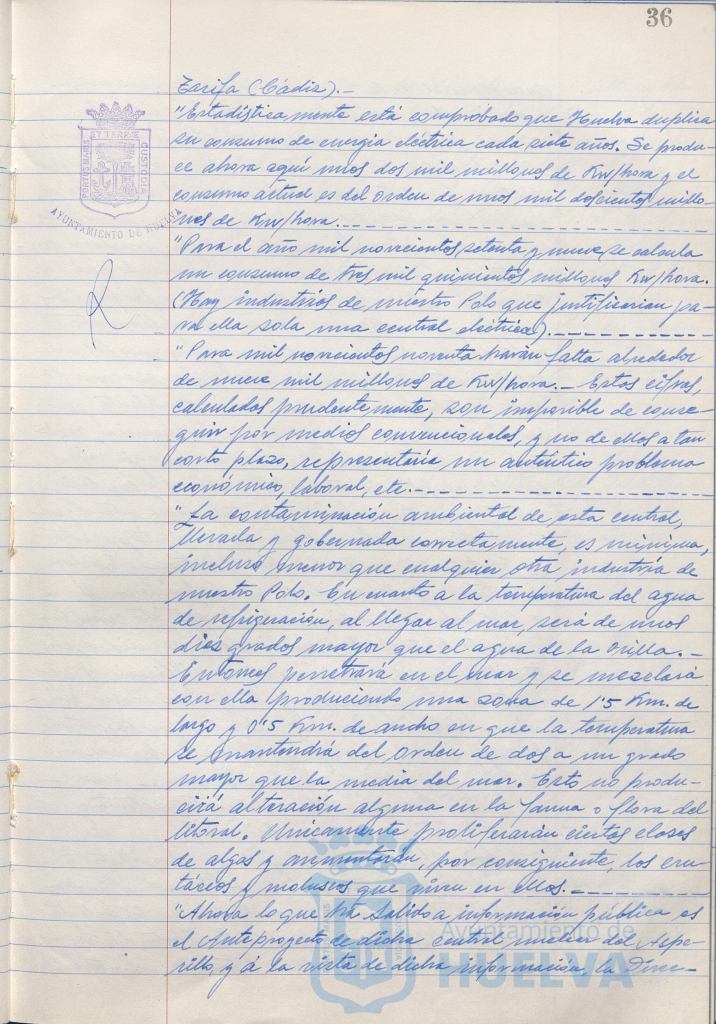 36
Tarifa (Cádiz).-
"Estadísticamente está comprobado que Huelva duplica
su consumo de energía eléctrica cada siete años. Se produ-
ce ahora aquí unos dos mil millones de Kw/hora y el
consumo actual es del orden de unos mil doscientos millo-
nes de Kw/hora.
"Para el año mil novecientos setenta y nueve se calcula
un consumo de tres mil quinientos millones Kw/hora.
(Hay industrias de nuestro Polo que justificarían pa-
ra ella sola una central eléctrica).
"Para mil novecientos noventa harán falta alrededor
de nueve mil millones de Kw/hora.- Estas cifras,
calculadas prudentemente, son imposible de conse-
guir por medios convencionales, y no de ellos a tan
corto plazo, representaría un auténtico problema
económico, laboral, etc.
"La contaminación ambiental de esta central,
llevada y gobernada correctamente, es mínima,
incluso menor que cualquier otra industria de
nuestro Polo. En cuanto a la temperatura del agua
de refrigeración, al llegar al mar, será de unos
diez grados mayor que el agua de la orilla.-
Entonces penetrará en el mar y se mezclará
con ella produciendo una zona de 1'5 Km. de
largo y 0'5 Km. de ancho en que la temperatura
se mantendrá del orden de dos a un grado
mayor que la media del mar. Esto no produ-
cirá alteración alguna en la fauna o flora del
litoral. Unicamente proliferarán ciertas clases
de algas y aumentarán, por consiguiente, los crus-
táceos y moluscos que viven en ellos.
"Ahora lo que ha salido a información pública es
el Anteproyecto de dicha central nuclear del Aspe-
rillo, y á la vista de dicha información, la Direc-
PORTUS MARIS ET TERRAE CUSTODIA
AYUNTAMIENTO DE HUELVA
Ayuntamiento de
HUELVA